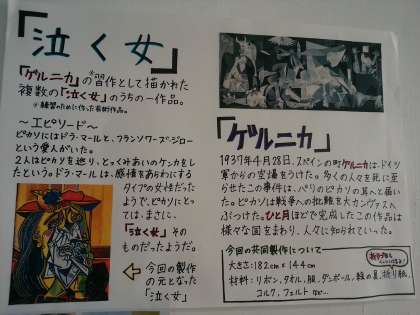 「泣く女」
「ゲルニカ」の※習作として描かれた
複数の「泣く女」のうちの一作品。
※練習のために作った芸術作品。
～エピソード～
ピカソにはドラ・マールと、フランソワーズ・ジロー
という愛人がいた。
2人はピカソを巡り、とっくみあいのケンカをし
たという。ドラ・マールは、感情をあらわにする
タイプの女性だった
ようで、ピカソにとっ
ては、まさに、
「泣く女」その
ものだったようだ。
今回の製作
の元となった
「泣く女」
「ゲルニカ」
1937年4月28日、スペインの町ゲルニカはドイツ
軍からの空爆をうけた。多くの人々を死に至
らせたこの事件は、パリのピカソの耳へと届い
た。ピカソは戦争への批難を大カンヴァスへ
ぶつけた。ひと月ほどで完成したこの作品は
様々な国をまわり、人々に知られていった。
今回の共同製作について
大きさ:182cm×144cm
材料:リボン、タオル、服、ダンボール、絵の具、折り紙、
コルク、フェルト etc…